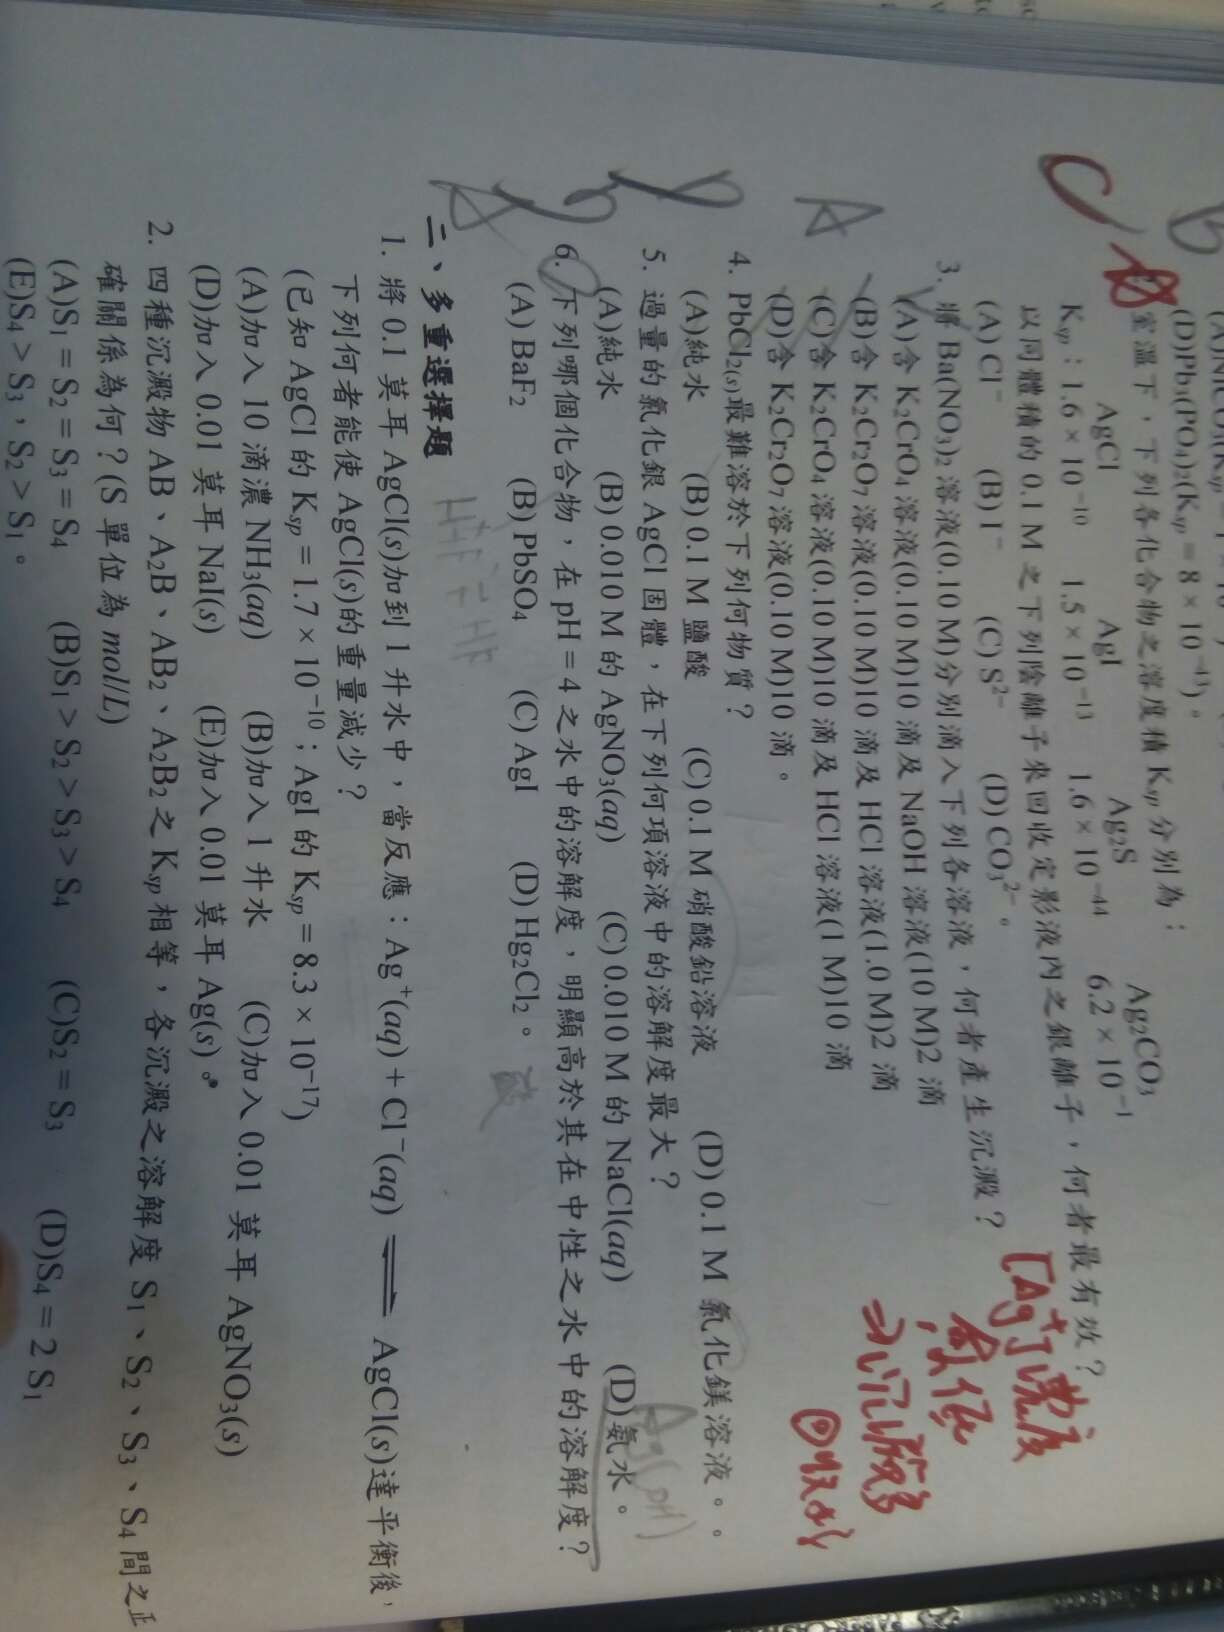 (D)Pb₃(PO₄)₂(Ksp = 8 × 10⁻⁴³)。
室溫下，下列各化合物之溶度積 Ksp 分別為：
AgCl AgI Ag₂S Ag₂CO₃
Ksp：1.6 × 10⁻¹⁰ 1.5 × 10⁻¹³ 1.6 × 10⁻⁴⁴ 6.2 × 10⁻¹
以同體積的 0.1 M 之下列陰離子來回收定影液內之銀離子，何者最有效？
(A) Cl⁻ (B) I⁻ (C) S²⁻ (D) CO₃²⁻。
3. 將 Ba(NO₃)₂ 溶液(0.10 M)分別滴入下列各溶液，何者產生沉澱？
(A)含 K₂CrO₄ 溶液(0.10 M)10 滴及 NaOH 溶液(10 M)2 滴
(B)含 K₂Cr₂O₇ 溶液(0.10 M)10 滴及 HCl 溶液(1.0 M)2 滴
(C)含 K₂CrO₄ 溶液(0.10 M)10 滴及 HCl 溶液(1 M)10 滴
(D)含 K₂Cr₂O₇ 溶液(0.10 M)10 滴。
4. PbCl₂(s)最難溶於下列何物質？
(A)純水 (B) 0.1 M 鹽酸 (C) 0.1 M 硝酸鉛溶液 (D) 0.1 M 氯化鎂溶液。
5. 過量的氯化銀 AgCl 固體，在下列何項溶液中的溶解度最大？
(A)純水 (B) 0.010 M 的 AgNO₃(aq) (C) 0.010 M 的 NaCl(aq) (D)氨水。
6. 下列哪個化合物，在 pH = 4 之水中的溶解度，明顯高於其在中性之水中的溶解度？
(A) BaF₂ (B) PbSO₄ (C) AgI (D) Hg₂Cl₂。
二、多重選擇題
1. 將 0.1 莫耳 AgCl(s)加到 1 升水中，當反應：Ag⁺(aq) + Cl⁻(aq) ⇌ AgCl(s)達平衡後，
下列何者能使 AgCl(s)的重量減少？
(已知 AgCl 的 Ksp = 1.7 × 10⁻¹⁰；AgI 的 Ksp = 8.3 × 10⁻¹⁷)
(A)加入 10 滴濃 NH₃(aq) (B)加入 1 升水 (C)加入 0.01 莫耳 AgNO₃(s)
(D)加入 0.01 莫耳 NaI(s) (E)加入 0.01 莫耳 Ag(s)。
2. 四種沉澱物 AB、A₂B、AB₂、A₂B₂ 之 Ksp 相等，各沉澱之溶解度 S₁、S₂、S₃、S₄ 間之正
確關係為何？(S 單位為 mol/L)
(A)S₁ = S₂ = S₃ = S₄ (B)S₁ > S₂ > S₃ > S₄ (C)S₂ = S₃ (D)S₄ = 2 S₁
(E)S₄ > S₃，S₂ > S₁。
B
C
A
[Ag⁺]濃度
愈低
⇒沉澱多